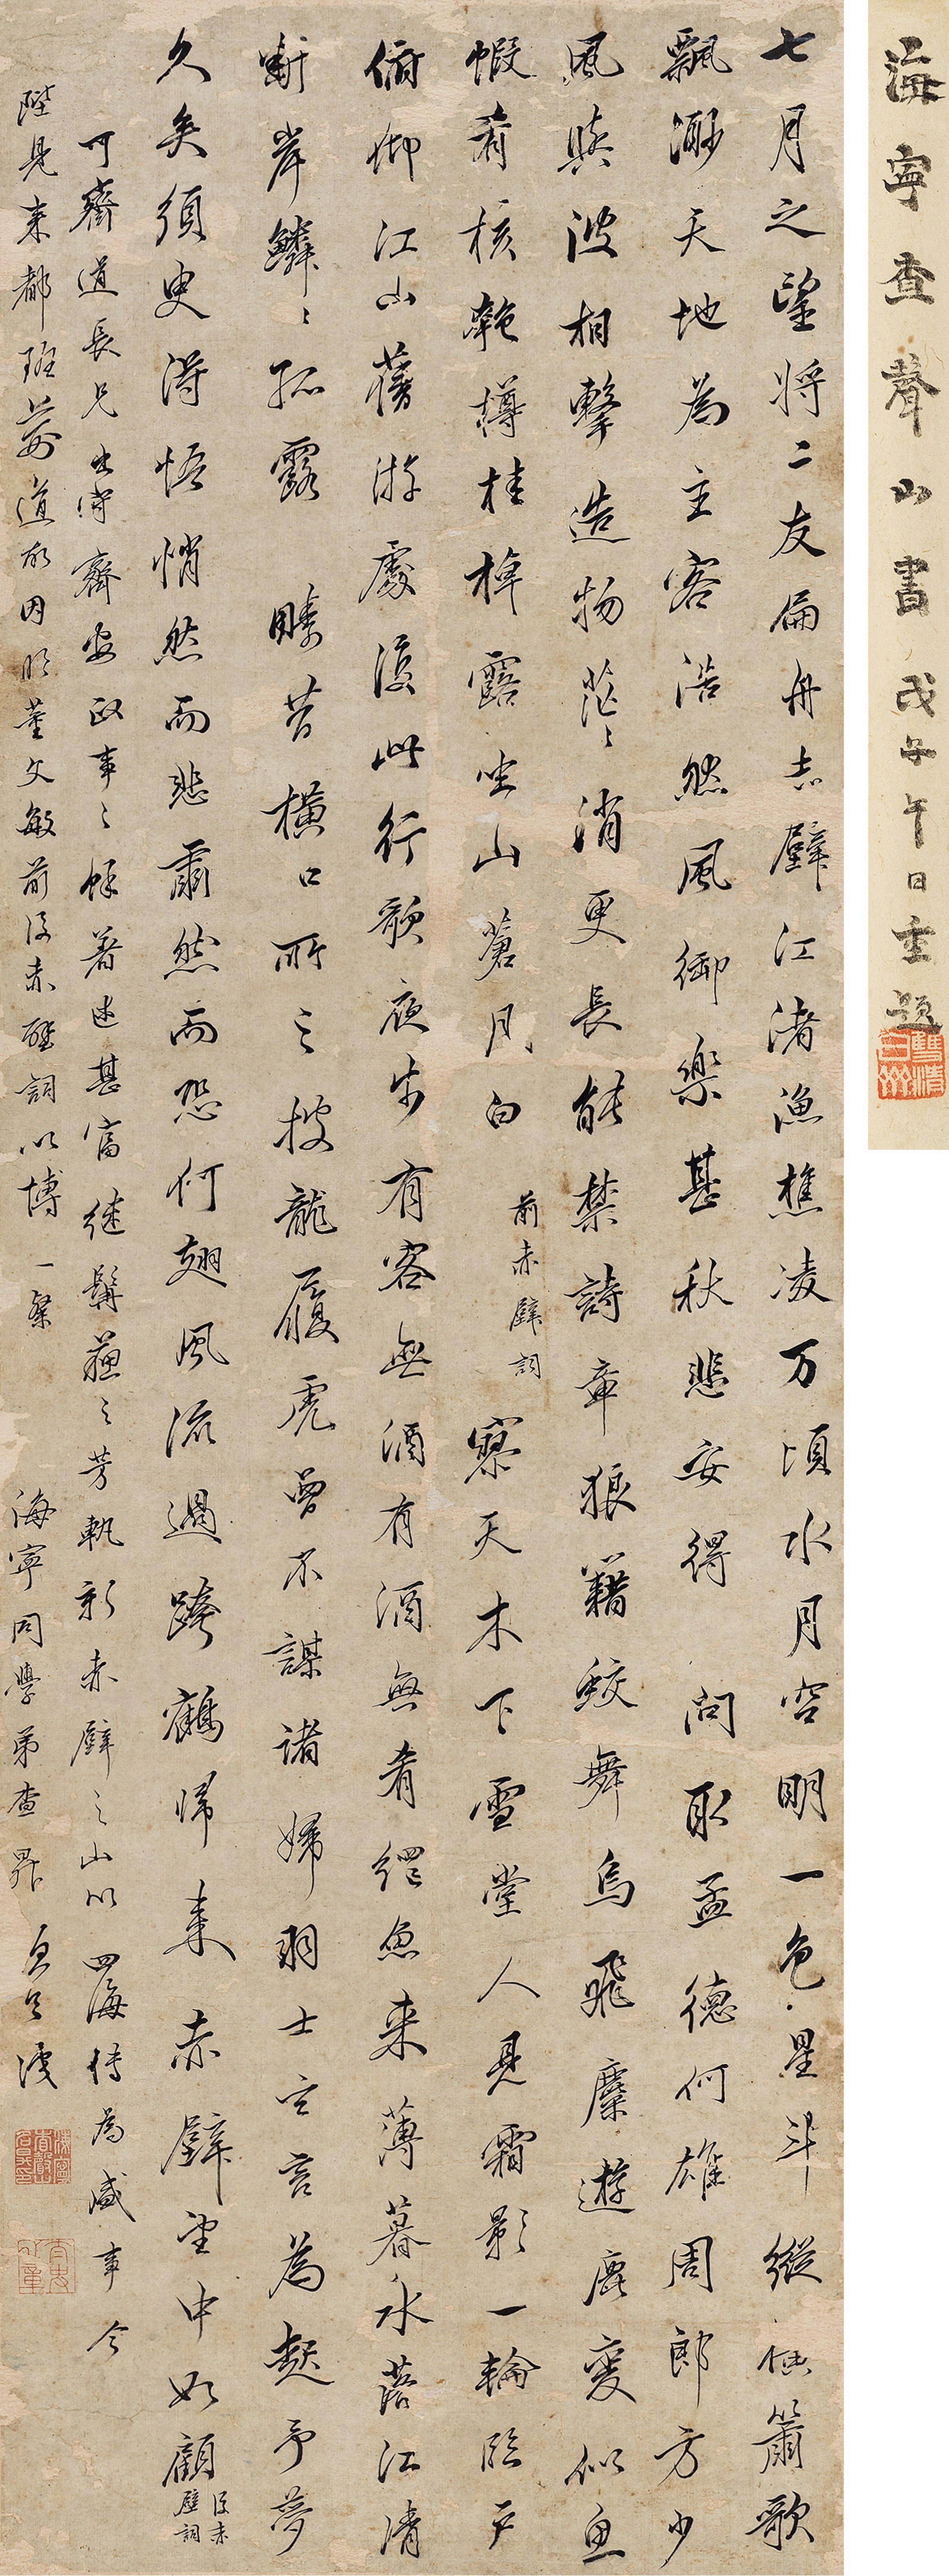 海寧查聲山書 戊子午日重題
七月之望將二友扁舟赤壁江渚漁樵凌万頃水月空明一色星斗縱橫簫歌
飄渺天地為主客浩然風御樂甚秋悲安得 問取孟德何雄周郎方少
風與波相擊造物茫〻消更長能禁詩章狼藉蛟舞烏飛麋遊鹿變似魚
蝦肴核匏樽桂棹露坐山蒼月白 前赤壁詞 寥天木下雪堂人見霜影一輪臨戶
俯仰江山舊游處復此行歌夜步有客無酒有酒無肴網魚來薄暮水落江清
斷岸鱗〻孤露 疇昔橫口所之披龍履虎曾不謀諸婦羽士言為起予夢
久矣須臾得悟悄然而悲肅然而恐何翅風流過跨鶴歸來赤壁望中如顧 後赤壁詞
可齋道長兄出守齊安政事之餘著述甚富繼髯蘇之芳軌新赤壁之山以四海傳為盛事今
陛見來都班荊道故因臨董文敏前後赤壁詞以博一粲 海寧同學弟查昇